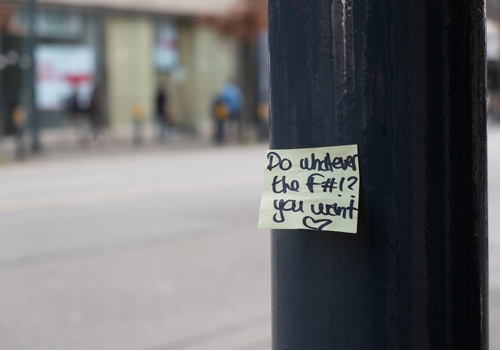 Do whatever
the F#!?
you want